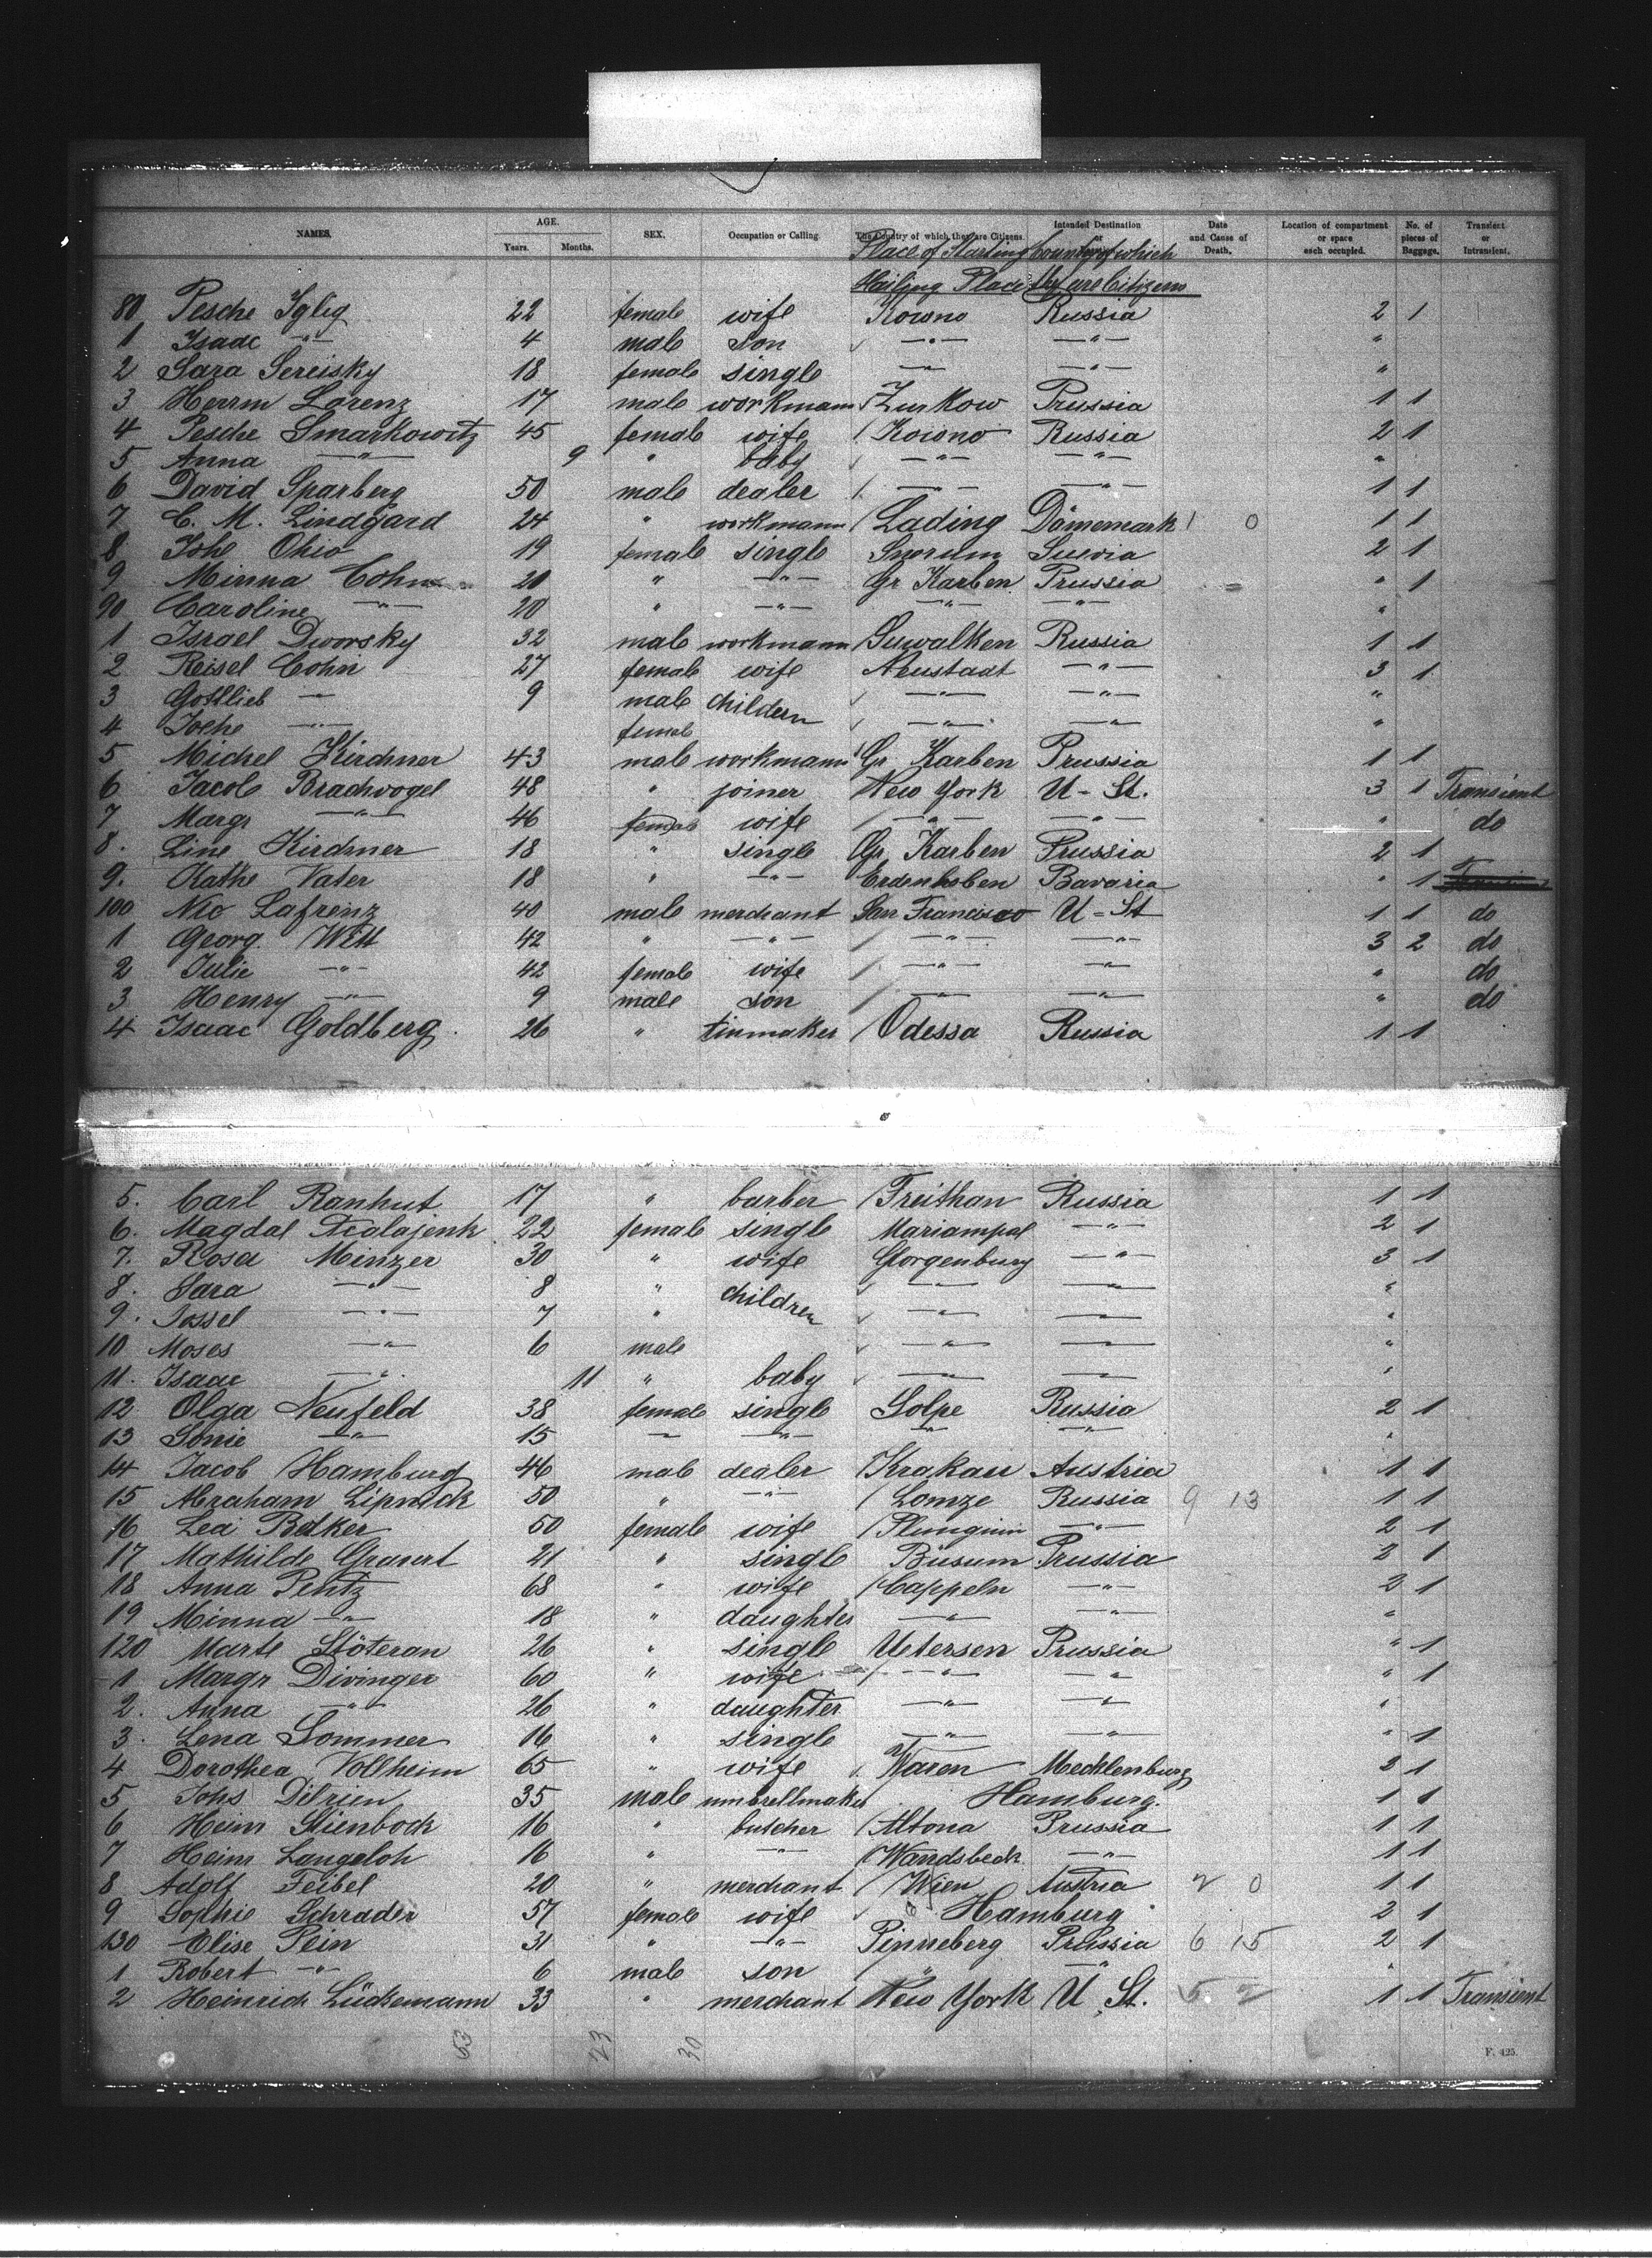 NAMES. AGE. Years. Months. SEX. Occupation or Calling The Country of which they are Citizens. Intended Destination or Date and Cause of Death. Location of compartment or space each occupied. No. of pieces of Baggage. Transient or Intransient.
Place of Starting Country of which
Hailing Place they are Citizens
80 Pesche Iglig 22 female wife Kowno Russia 2 1
1 Isaac -"- 4 male son -"- -"- "
2 Sara Sereisky 18 female single -"- -"- "
3 Herrm Lorenz 17 male workmann Zurkow Prussia 1 1
4 Pesche Smarkowitz 45 female wife Kowno Russia 2 1
5 Anna -"- 9 " baby -"- -"- "
6 David Sparberg 50 male dealer -"- -"- 1 1
7 C. M. Lindgard 24 " workmann Lading Dömemark 1 0 1 1
8 Johe Ohio 19 female single Snorum Suevia 2 1
9 Minna Cohn 20 " -"- Gr Karben Prussia " 1
90 Caroline -"- 20 " -"- -"- -"- "
1 Israel Dworsky 32 male workmann Suwalken Russia 1 1
2 Reisel Cohn 27 female wife Neustadt -"- 3 1
3 Gottlieb - 9 male childern -"- -"- "
4 -"- female -"- -"- "
5 Michel Kirchner 43 male workmann Gr. Karben Prussia 1 1
6 Jacob Brachvogel 48 " joiner New York U-St. 3 1 Transient
7 Margr -"- 46 female wife -"- -"- " do
8. Line Kirchner 18 " single Gr. Karben Prussia 2 1
9. Kathe Vater 18 " -"- Erdenkoben Bavaria " 1
100 Nic Lafrenz 40 male merchant San Francisco U-St 1 1 do
1 Georg. Witt 42 " -"- -"- -"- 3 2 do
2 Julie -"- 42 female wife -"- -"- " do
3 Henry -"- 9 male son -"- -"- " do
4 Isaac Goldberg 26 " tinmaker Odessa Russia 1 1
5. Carl Ranhut 17 " barber Freithan Russia 1 1
6. Magdal 22 female single Mariampal -"- 2 1
7. Rosa Minzer 30 " wife Gorgenburg -"- 3 1
8. Sara -"- 8 " children -"- -"- "
9. Jossel -"- 7 " -"- -"- "
10 Moses -"- 6 male -"- -"- "
11. Isaac -"- 11 " baby -"- -"- "
12 Olga Neufeld 38 female single Solpe Russia 2 1
13 Sonie -"- 15 - -"- -"- -"- "
14 Jacob Hamburg 46 male dealer Krakau Austria 1 1
15 Abraham Lipnick 50 " -"- Lomze Russia 9 13 1 1
16 Lea Betker 50 female wife -"- 2 1
17 Mathilde Gravert 21 " single Büsum Prussia 2 1
18 Anna Pentz 68 " wife Cappeln -"- 2 1
19 Minna -"- 18 " daughter -"- -"- "
120 Marte Stöteran 26 " single Uetersen Prussia " 1
1 Margr Divinger 60 " wife -"- -"- " 1
2. Anna -"- 26 " daughter -"- -"- "
3. Lena Sommer 16 " single -"- -"- " 1
4 Dorothea Vollheim 65 " wife Waren Mecklenburg 2 1
5 Johs 35 male umbrellmaker Hamburg. 1 1
6 Heinr Stienbock 16 " butcher Altona Prussia 1 1
7 Heinr Langeloh 16 " -"- Wandsbeck -"- 1 1
8 Adolf Feibel 20 " merchant Wien Austria 2 0 1 1
9 Sophie Schrader 57 female wife Hamburg 2 1
130 Elise Pein 31 " -"- Pinneberg Prussia 6 15 2 1
1 Robert -"- 6 male son " -"- "
2 Heinrich Lüdsemann 33 " merchant New York U. St. 5 2 1 1 Transient
53 23 30
F. 425.